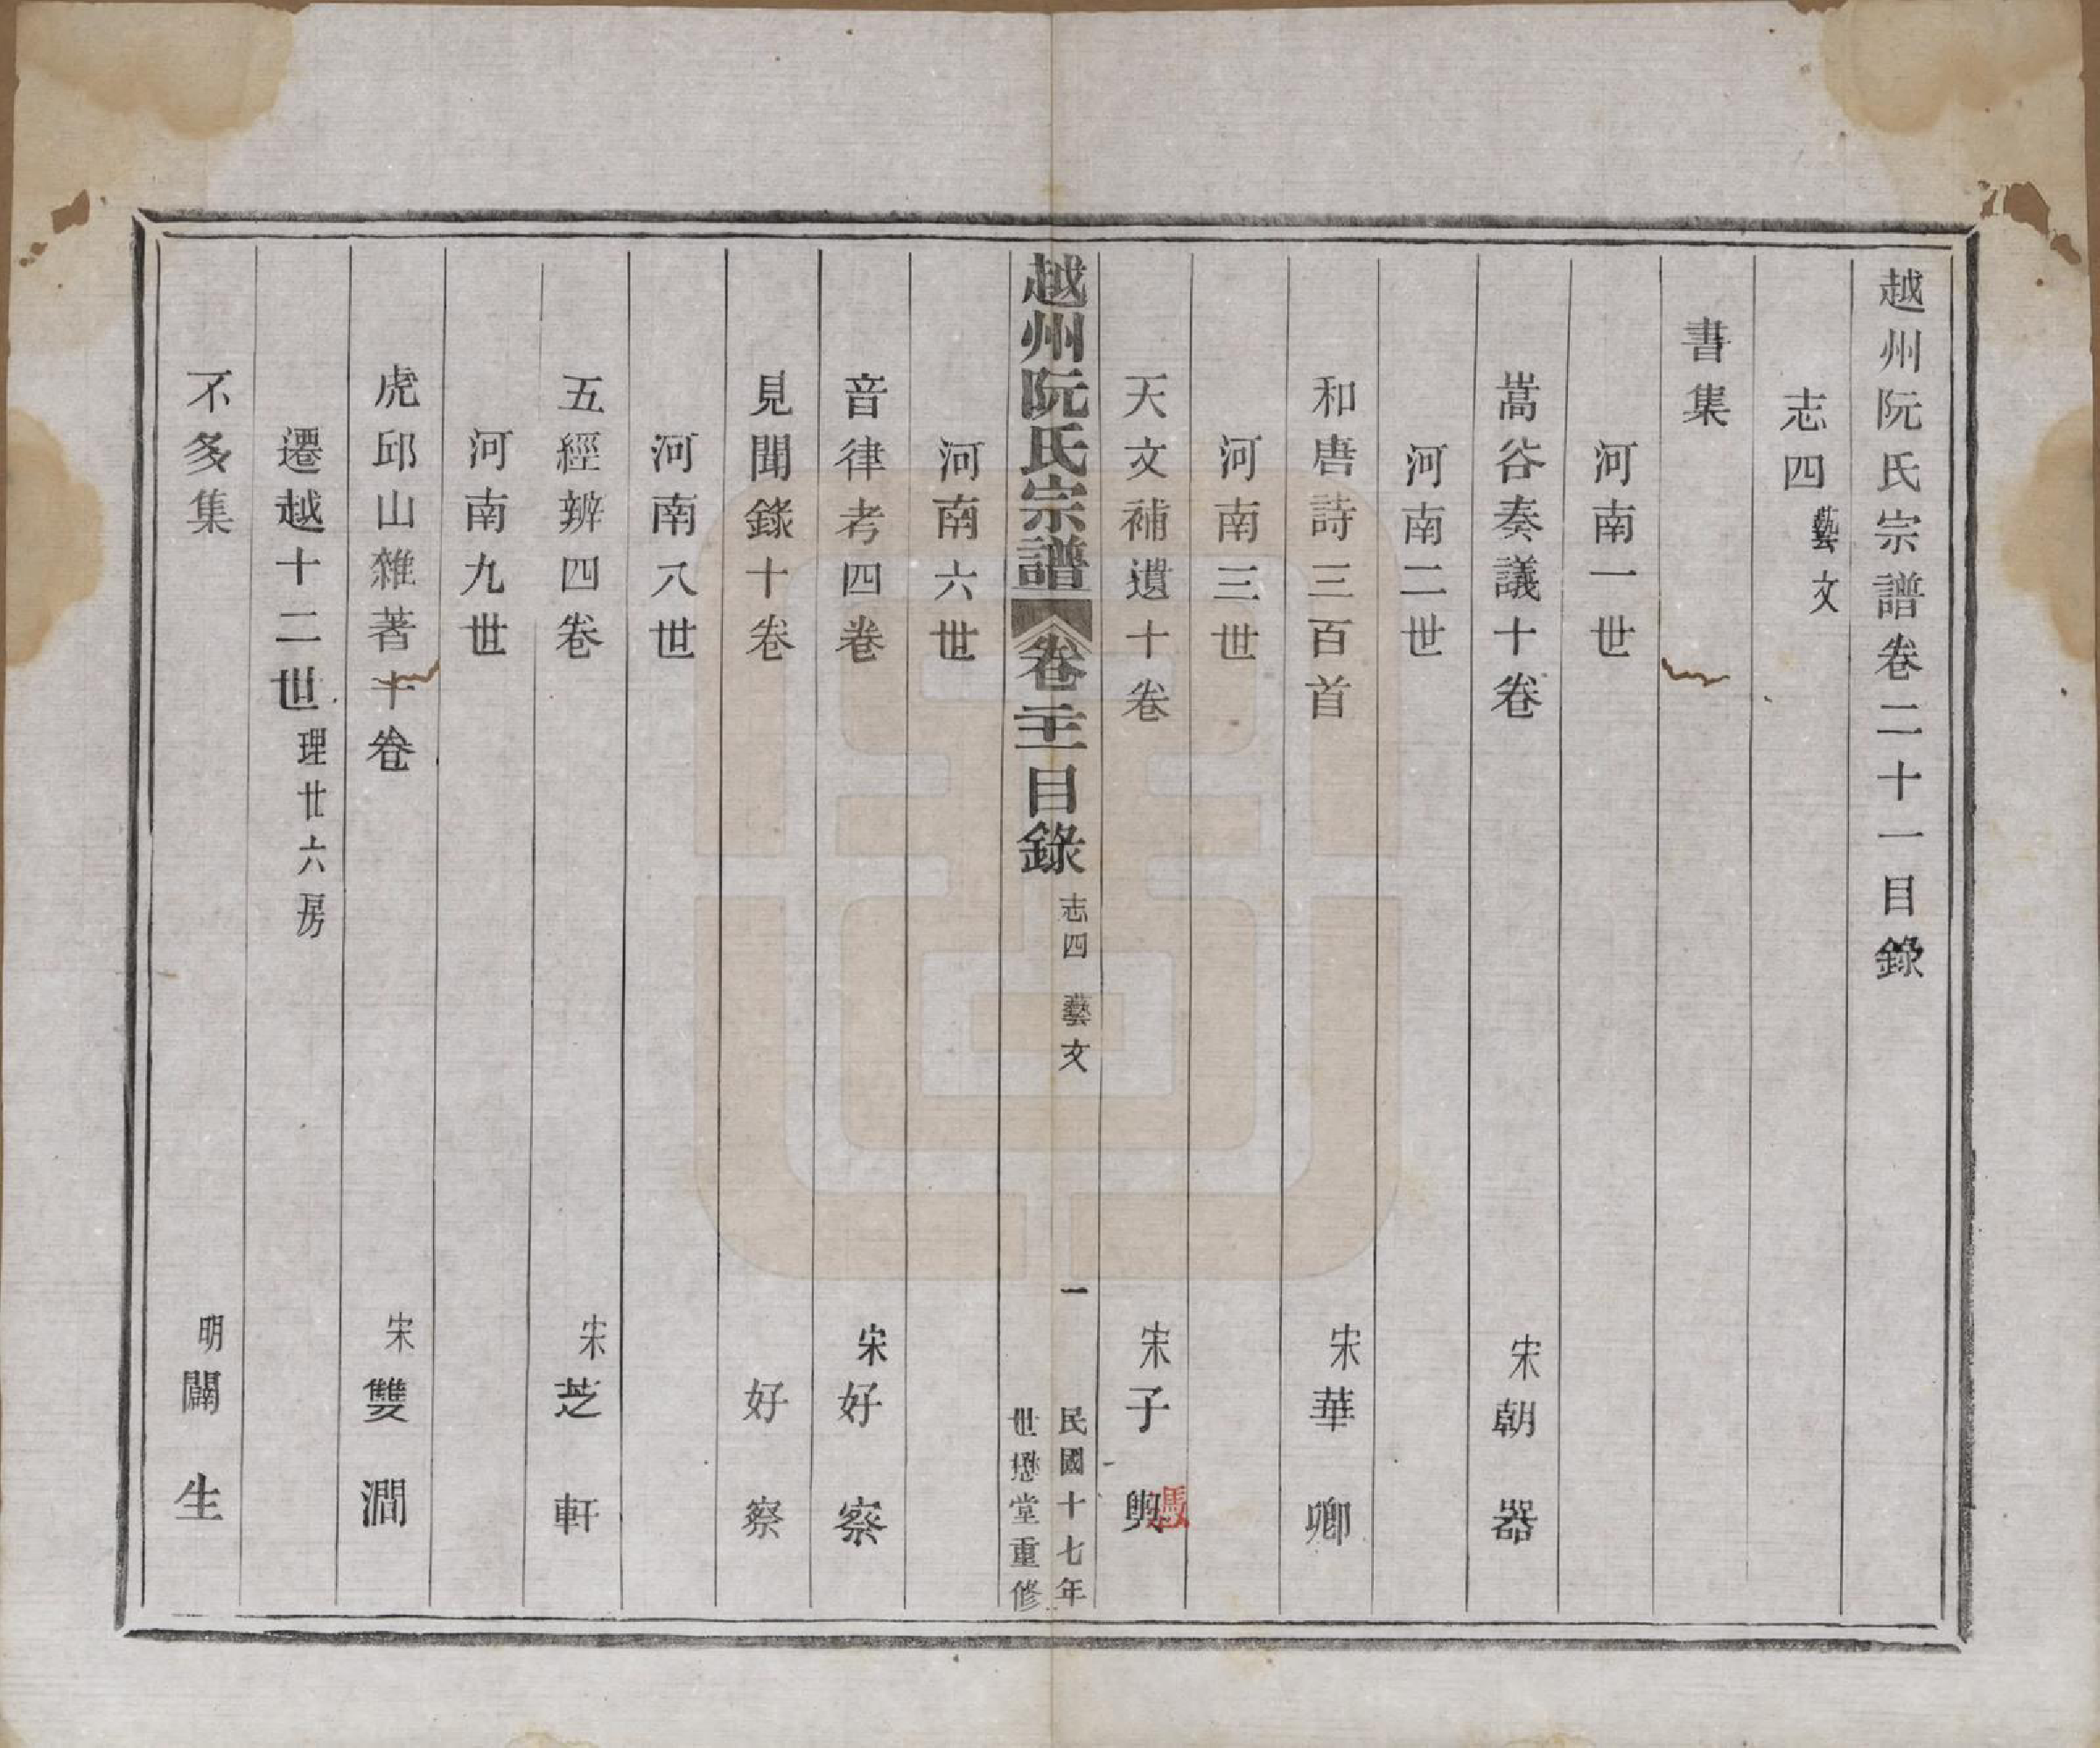 越州阮氏宗譜卷二十一目錄
志四藝文
書集
河南一世
嵩谷奏議十卷 宋朝器
河南二世
和唐詩三百首 宋華卿
河南三世
天文補遺十卷 宋子輿
憑
越州阮氏宗譜 卷二十一目錄 志四 藝文 一 民國十七年
世懋堂重修
河南六世
音律考四卷 宋好察
見聞錄十卷 好察
河南八世
五經辨四卷 宋芝軒
河南九世
虎邱山雜著十卷 宋雙澗
遷越十二世理廿六房
不多集 明闢生